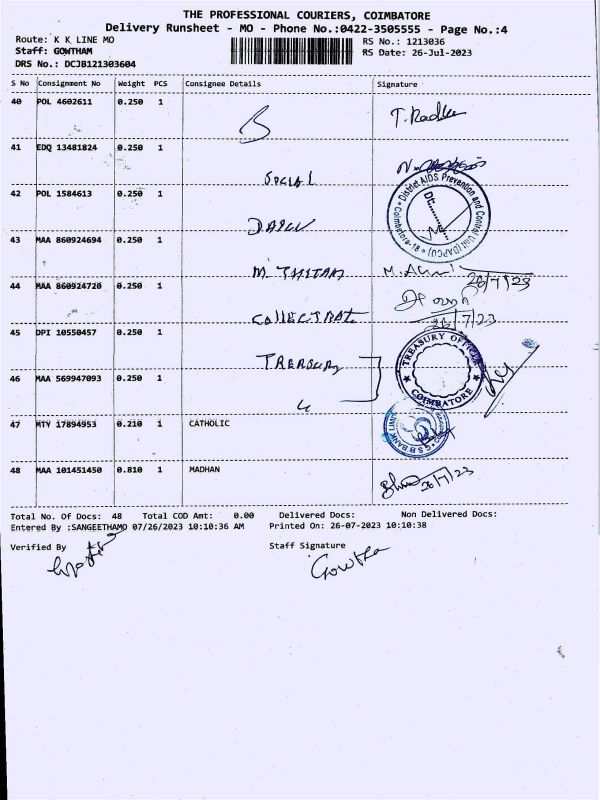 THE PROFESSIONAL COURIERS, COIMBATORE
Delivery Runsheet - MO - Phone No.:0422-3505555 - Page No.:4
Route: K K LINE MO
RS No.: 1213036
Staff: GOWTHAM
RS Date: 26-Jul-2023
DRS No.: DCJB121303604
S No Consignment No Weight PCS Consignee Details Signature
40 POL 4602611 0.250 1 T. Radha
41 EDQ 13481824 0.250 1 SOCIAL
42 POL 1584613 0.250 1 DAPCU
District AIDS Prevention and Control Unit (DAPCU) Coimbatore-18
43 MAA 860924694 0.250 1 26/7/23
44 MAA 860924720 0.250 1 COLLECTRAT 26/7/23
45 DPI 10550457 0.250 1 TREASURY
TREASURY OFFICER COIMBATORE
46 MAA 569947093 0.250 1
47 MTY 17894953 0.210 1 CATHOLIC
48 MAA 101451450 0.810 1 MADHAN 26/7/23
Total No. Of Docs: 48 Total COD Amt: 0.00 Delivered Docs: Non Delivered Docs:
Entered By :SANGEETHAMO 07/26/2023 10:10:36 AM Printed On: 26-07-2023 10:10:38
Verified By Staff Signature
Gowtha